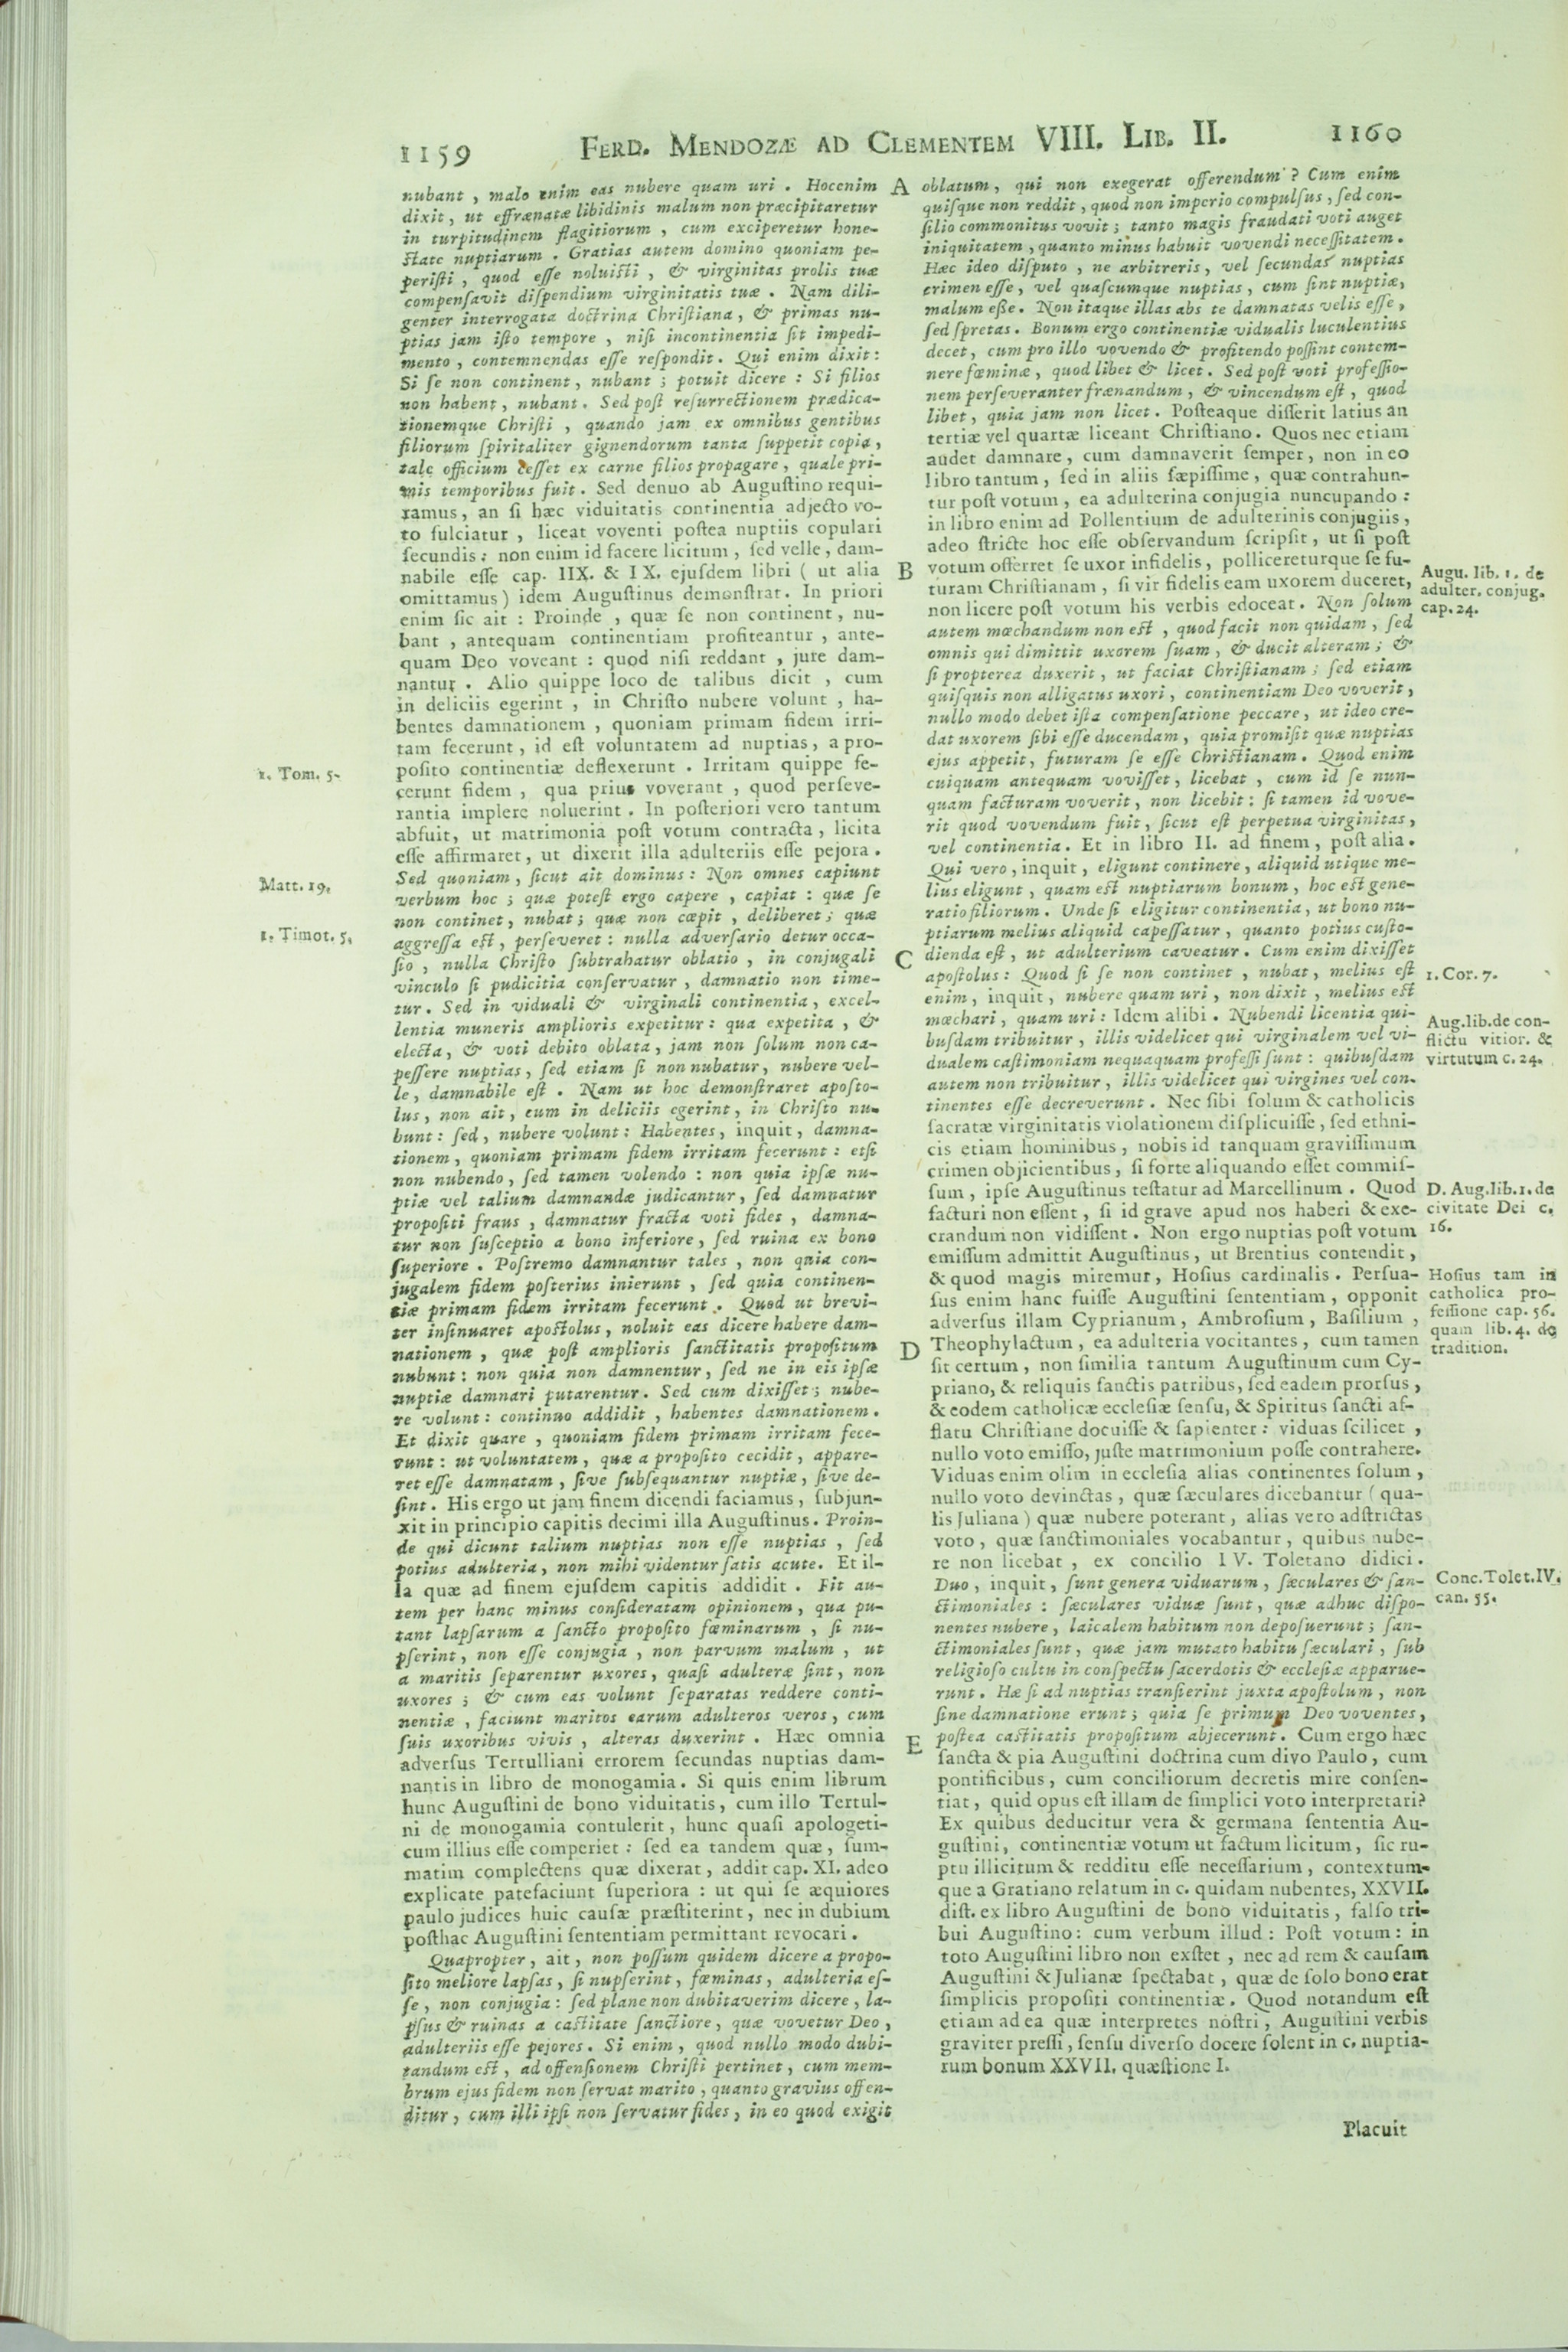 1159
FERD. MENDOZÆ AD CLEMENTEM VIII. LIB. II.
1160
nubant, malo enim eas nubere quam uri. Hocenim
dixit, ut effrænatæ libidinis malum non præcipitaretur
in turpitudinem flagitiorum, cum exciperetur hone-
ſtate nuptiarum. Gratias autem domino quoniam pe-
periſti, quod eſſe noluiſti, & virginitas prolis tuæ
compenſavit diſpendium virginitatis tuæ. Nam dili-
genter interrogata doctrina Chriſtiana, & primas nu-
ptias jam iſto tempore, niſi incontinentia ſit impedi-
mento, contemnendas eſſe reſpondit. Qui enim dixit:
Si ſe non continent, nubant; potuit dicere: Si filios
non habent, nubant. Sed poſt reſurrectionem prædica-
tionemque Chriſti, quando jam ex omnibus gentibus
filiorum ſpiritaliter gignendorum tanta ſuppetit copia,
tale officium eſſet ex carne filios propagare, quale pri-
mis temporibus fuit. Sed denuo ab Auguſtino requi-
ramus, an ſi hæc viduitatis continentia adjecto vo-
to fulciatur, liceat voventi poſtea nuptiis copulari
ſecundis: non enim id facere licitum, ſed velle, dam-
nabile eſſe cap. IIX. & IX. ejuſdem libri (ut alia
omittamus) idem Auguſtinus demonſtrat. In priori
enim ſic ait: Proinde, quæ ſe non continent, nu-
bant, antequam continentiam profiteantur, ante-
quam Deo voveant: quod niſi reddant, jure dam-
nantur. Alio quippe loco de talibus dicit, cum
in deliciis egerint, in Chriſto nubere volunt, ha-
bentes damnationem, quoniam primam fidem irri-
tam fecerunt, id eſt voluntatem ad nuptias, a pro-
poſito continentiæ deflexerunt. Irritam quippe fe-
cerunt fidem, qua prius voverant, quod perſeve-
rantia implere noluerint. In poſteriori vero tantum
abfuit, ut matrimonia poſt votum contracta, licita
eſſe affirmaret, ut dixerit illa adulteriis eſſe pejora.
Sed quoniam, ſicut ait dominus: Non omnes capiunt
verbum hoc; quæ poteſt ergo capere, capiat: quæ ſe
non continet, nubat; quæ non cœpit, deliberet; quæ
aggreſſa eſt, perſeveret: nulla adverſario detur occa-
ſio, nulla Chriſto ſubtrahatur oblatio, in conjugali
vinculo ſi pudicitia conſervatur, damnatio non time-
tur. Sed in viduali & virginali continentia, excel-
lentia muneris amplioris expetitur: qua expetita, &
electa, & voti debito oblata, jam non ſolum non ca-
peſſere nuptias, ſed etiam ſi non nubatur, nubere vel-
le, damnabile eſt. Nam ut hoc demonſtraret apoſto-
lus, non ait, cum in deliciis egerint, in Chriſto nu-
bunt: ſed, nubere volunt: Habentes, inquit, damna-
tionem, quoniam primam fidem irritam fecerunt: etſi
non nubendo, ſed tamen volendo: non quia ipſæ nu-
ptiæ vel talium damnandæ judicantur, ſed damnatur
propoſiti fraus, damnatur fracta voti fides, damna-
tur non ſuſceptio a bono inferiore, ſed ruina ex bono
ſuperiore. Poſtremo damnantur tales, non quia con-
jugalem fidem poſterius inierunt, ſed quia continen-
tiæ primam fidem irritam fecerunt. Quod ut brevi-
ter inſinuaret apoſtolus, noluit eas dicere habere dam-
nationem, quæ poſt amplioris ſanctitatis propoſitum
nubunt: non quia non damnentur, ſed ne in eis ipſæ
nuptiæ damnari putarentur. Sed cum dixiſſet; nube-
re volunt: continuo addidit, habentes damnationem.
Et dixit quare, quoniam fidem primam irritam fece-
runt: ut voluntatem, quæ a propoſito cecidit, appare-
ret eſſe damnatam, ſive ſubſequantur nuptiæ, ſive de-
ſint. His ergo ut jam finem dicendi faciamus, ſubjun-
xit in principio capitis decimi illa Auguſtinus. Proin-
de qui dicunt talium nuptias non eſſe nuptias, ſed
potius adulteria, non mihi videntur ſatis acute. Et il-
la quæ ad finem ejuſdem capitis addidit. Fit au-
tem per hanc minus conſideratam opinionem, qua pu-
tant lapſarum a ſancto propoſito fœminarum, ſi nu-
pſerint, non eſſe conjugia, non parvum malum, ut
a maritis ſeparentur uxores, quaſi adulteræ ſint, non
uxores; & cum eas volunt ſeparatas reddere conti-
nentiæ, faciunt maritos earum adulteros veros, cum
ſuis uxoribus vivis, alteras duxerint. Hæc omnia
adverſus Tertulliani errorem ſecundas nuptias dam-
nantis in libro de monogamia. Si quis enim librum
hunc Auguſtini de bono viduitatis, cum illo Tertul-
ni de monogamia contulerit, hunc quaſi apologeti-
cum illius eſſe comperiet: ſed ea tandem quæ, ſum-
matim complectens quæ dixerat, addit cap. XI. adeo
explicate patefaciunt ſuperiora: ut qui ſe æquiores
paulo judices huic cauſæ præſtiterint, nec in dubium
poſthac Auguſtini ſententiam permittant revocari.
Quapropter, ait, non poſſum quidem dicere a propo-
ſito meliore lapſas, ſi nupſerint, fœminas, adulteria eſ-
ſe, non conjugia: ſed plane non dubitaverim dicere, la-
pſus & ruinas a caſtitate ſanctiore, quæ vovetur Deo,
adulteriis eſſe pejores. Si enim, quod nullo modo dubi-
tandum eſt, ad offenſionem Chriſti pertinet, cum mem-
brum ejus fidem non ſervat marito, quanto gravius offen-
ditur, cum illi ipſi non ſervatur fides, in eo quod exigit
1. Tom. 5.
Matt. 19.
1. Timot. 5.
A
B
C
D
E
oblatum, qui non exegerat offerendum? Cum enim
quiſque non reddit, quod non imperio compulſus, ſed con-
ſilio commonitus vovit; tanto magis fraudati voti auget
iniquitatem, quanto minus habuit vovendi neceſſitatem.
Hæc ideo diſputo, ne arbitreris, vel ſecundas nuptias
crimen eſſe, vel quaſcumque nuptias, cum ſint nuptiæ,
malum eſſe. Non itaque illas abs te damnatas velis eſſe,
ſed ſpretas. Bonum ergo continentiæ vidualis luculentius
decet, cum pro illo vovendo & profitendo poſſint contem-
nere fœminæ, quod libet & licet. Sed poſt voti profeſſio-
nem perſeveranter frænandum, & vincendum eſt, quod
libet, quia jam non licet. Poſteaque diſſerit latius an
tertiæ vel quartæ liceant Chriſtiano. Quos nec etiam
audet damnare, cum damnaverit ſemper, non in eo
libro tantum, ſed in aliis ſæpiſſime, quæ contrahun-
tur poſt votum, ea adulterina conjugia nuncupando:
in libro enim ad Pollentium de adulterinis conjugiis,
adeo ſtricte hoc eſſe obſervandum ſcripſit, ut ſi poſt
votum offerret ſe uxor infidelis, pollicereturque ſe fu-
turam Chriſtianam, ſi vir fidelis eam uxorem duceret,
non licere poſt votum his verbis edoceat. Non ſolum
autem mœchandum non eſt, quod facit non quidam, ſed
omnis qui dimittit uxorem ſuam, & ducit alteram; &
ſi propterea duxerit, ut faciat Chriſtianam; ſed etiam
quiſquis non alligatus uxori, continentiam Deo voverit,
nullo modo debet iſta compenſatione peccare, ut ideo cre-
dat uxorem ſibi eſſe ducendam, quia promiſit quæ nuptias
ejus appetit, futuram ſe eſſe Chriſtianam. Quod enim
cuiquam antequam voviſſet, licebat, cum id ſe nun-
quam facturam voverit, non licebit: ſi tamen id vove-
rit quod vovendum fuit, ſicut eſt perpetua virginitas,
vel continentia. Et in libro II. ad finem, poſt alia.
Qui vero, inquit, eligunt continere, aliquid utique me-
lius eligunt, quam eſt nuptiarum bonum, hoc eſt gene-
ratio filiorum. Unde ſi eligitur continentia, ut bono nu-
ptiarum melius aliquid capeſſatur, quanto potius cuſto-
dienda eſt, ut adulterium caveatur. Cum enim dixiſſet
apoſtolus: Quod ſi ſe non continet, nubat, melius eſt
enim, inquit, nubere quam uri, non dixit, melius eſt
mœchari, quam uri: Idem alibi. Nubendi licentia qui-
buſdam tribuitur, illis videlicet qui virginalem vel vi-
dualem caſtimoniam nequaquam profeſſi ſunt: quibuſdam
autem non tribuitur, illis videlicet qui virgines vel con-
tinentes eſſe decreverunt. Nec ſibi ſolum & catholicis
ſacratæ virginitatis violationem diſplicuiſſe, ſed ethni-
cis etiam hominibus, nobis id tanquam graviſſimum
crimen objicientibus, ſi forte aliquando eſſet commiſ-
ſum, ipſe Auguſtinus teſtatur ad Marcellinum. Quod
facturi non eſſent, ſi id grave apud nos haberi & exe-
crandum non vidiſſent. Non ergo nuptias poſt votum
emiſſum admittit Auguſtinus, ut Brentius contendit,
& quod magis miremur, Hoſius cardinalis. Perſua-
ſus enim hanc fuiſſe Auguſtini ſententiam, opponit
adverſus illam Cyprianum, Ambroſium, Baſilium,
Theophylactum, ea adulteria vocitantes, cum tamen
ſit certum, non ſimilia tantum Auguſtinum cum Cy-
priano, & reliquis ſanctis patribus, ſed eadem prorſus,
& eodem catholicæ eccleſiæ ſenſu, & Spiritus ſancti af-
flatu Chriſtiane docuiſſe & ſapienter: viduas ſcilicet,
nullo voto emiſſo, juſte matrimonium poſſe contrahere.
Viduas enim olim in eccleſia alias continentes ſolum,
nullo voto devinctas, quæ ſæculares dicebantur (qua-
lis Juliana) quæ nubere poterant, alias vero adſtrictas
voto, quæ ſanctimoniales vocabantur, quibus nube-
re non licebat, ex concilio IV. Toletano didici.
Duo, inquit, ſunt genera viduarum, ſæculares & ſan-
ctimoniales: ſæculares viduæ ſunt, quæ adhuc diſpo-
nentes nubere, laicalem habitum non depoſuerunt; ſan-
ctimoniales ſunt, quæ jam mutato habitu ſæculari, ſub
religioſo cultu in conſpectu ſacerdotis & eccleſiæ apparue-
runt. Hæ ſi ad nuptias tranſierint juxta apoſtolum, non
ſine damnatione erunt; quia ſe primum Deo voventes,
poſtea caſtitatis propoſitum abjecerunt. Cum ergo hæc
ſancta & pia Auguſtini doctrina cum divo Paulo, cum
pontificibus, cum conciliorum decretis mire conſen-
tiat, quid opus eſt illam de ſimplici voto interpretari?
Ex quibus deducitur vera & germana ſententia Au-
guſtini, continentiæ votum ut factum licitum, ſic ru-
ptu illicitum & redditu eſſe neceſſarium, contextum-
que a Gratiano relatum in c. quidam nubentes, XXVII.
diſt. ex libro Auguſtini de bono viduitatis, falſo tri-
bui Auguſtino: cum verbum illud: Poſt votum: in
toto Auguſtini libro non exſtet, nec ad rem & cauſam
Auguſtini & Julianæ ſpectabat, quæ de ſolo bono erat
ſimplicis propoſiti continentiæ. Quod notandum eſt
etiam ad ea quæ interpretes noſtri, Auguſtini verbis
graviter preſſi, ſenſu diverſo docere ſolent in c. nuptia-
rum bonum XXVII. quæſtione I.
Augu. lib. 1. de
adulter. conjug.
cap. 24.
1. Cor. 7.
Aug. lib. de con-
flictu vitior. &
virtutum c. 24.
D. Aug. lib. 1. de
civitate Dei c.
16.
Hoſius tam in
catholica pro-
feſſione cap. 56.
quam lib. 4. de
tradition.
Conc. Tolet. IV.
can. 55.
Placuit